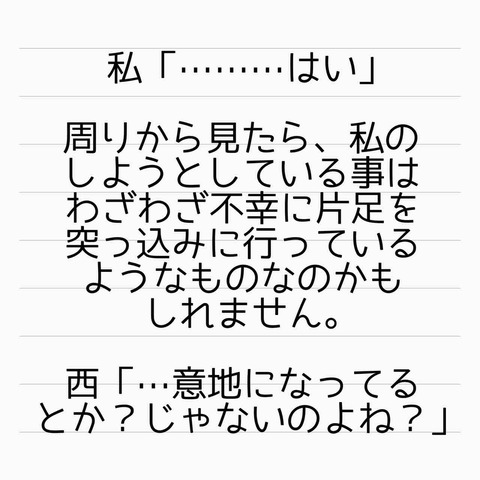 私「………はい」
周りから見たら、私の
しようとしている事は
わざわざ不幸に片足を
突っ込みに行っている
ようなものなのかも
しれません。
西「…意地になってる
とか？じゃないのよね？」